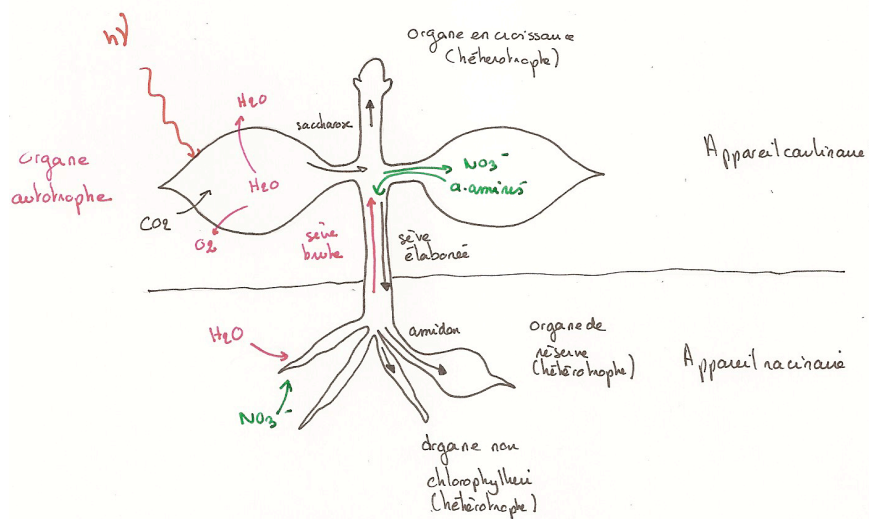 hν
organe en croissance
(héhérotrophe)
H2O
saccharose
organe
autotrophe
H2O
CO2
O2
NO3-
a.aminés
Appareil caulinaire
sève
brute
sève
élaborée
H2O
NO3-
amidon
organe de
réserve
(hétérotrophe)
Appareil racinaire
organe non
chlorophyllien
(hétérotrophe)